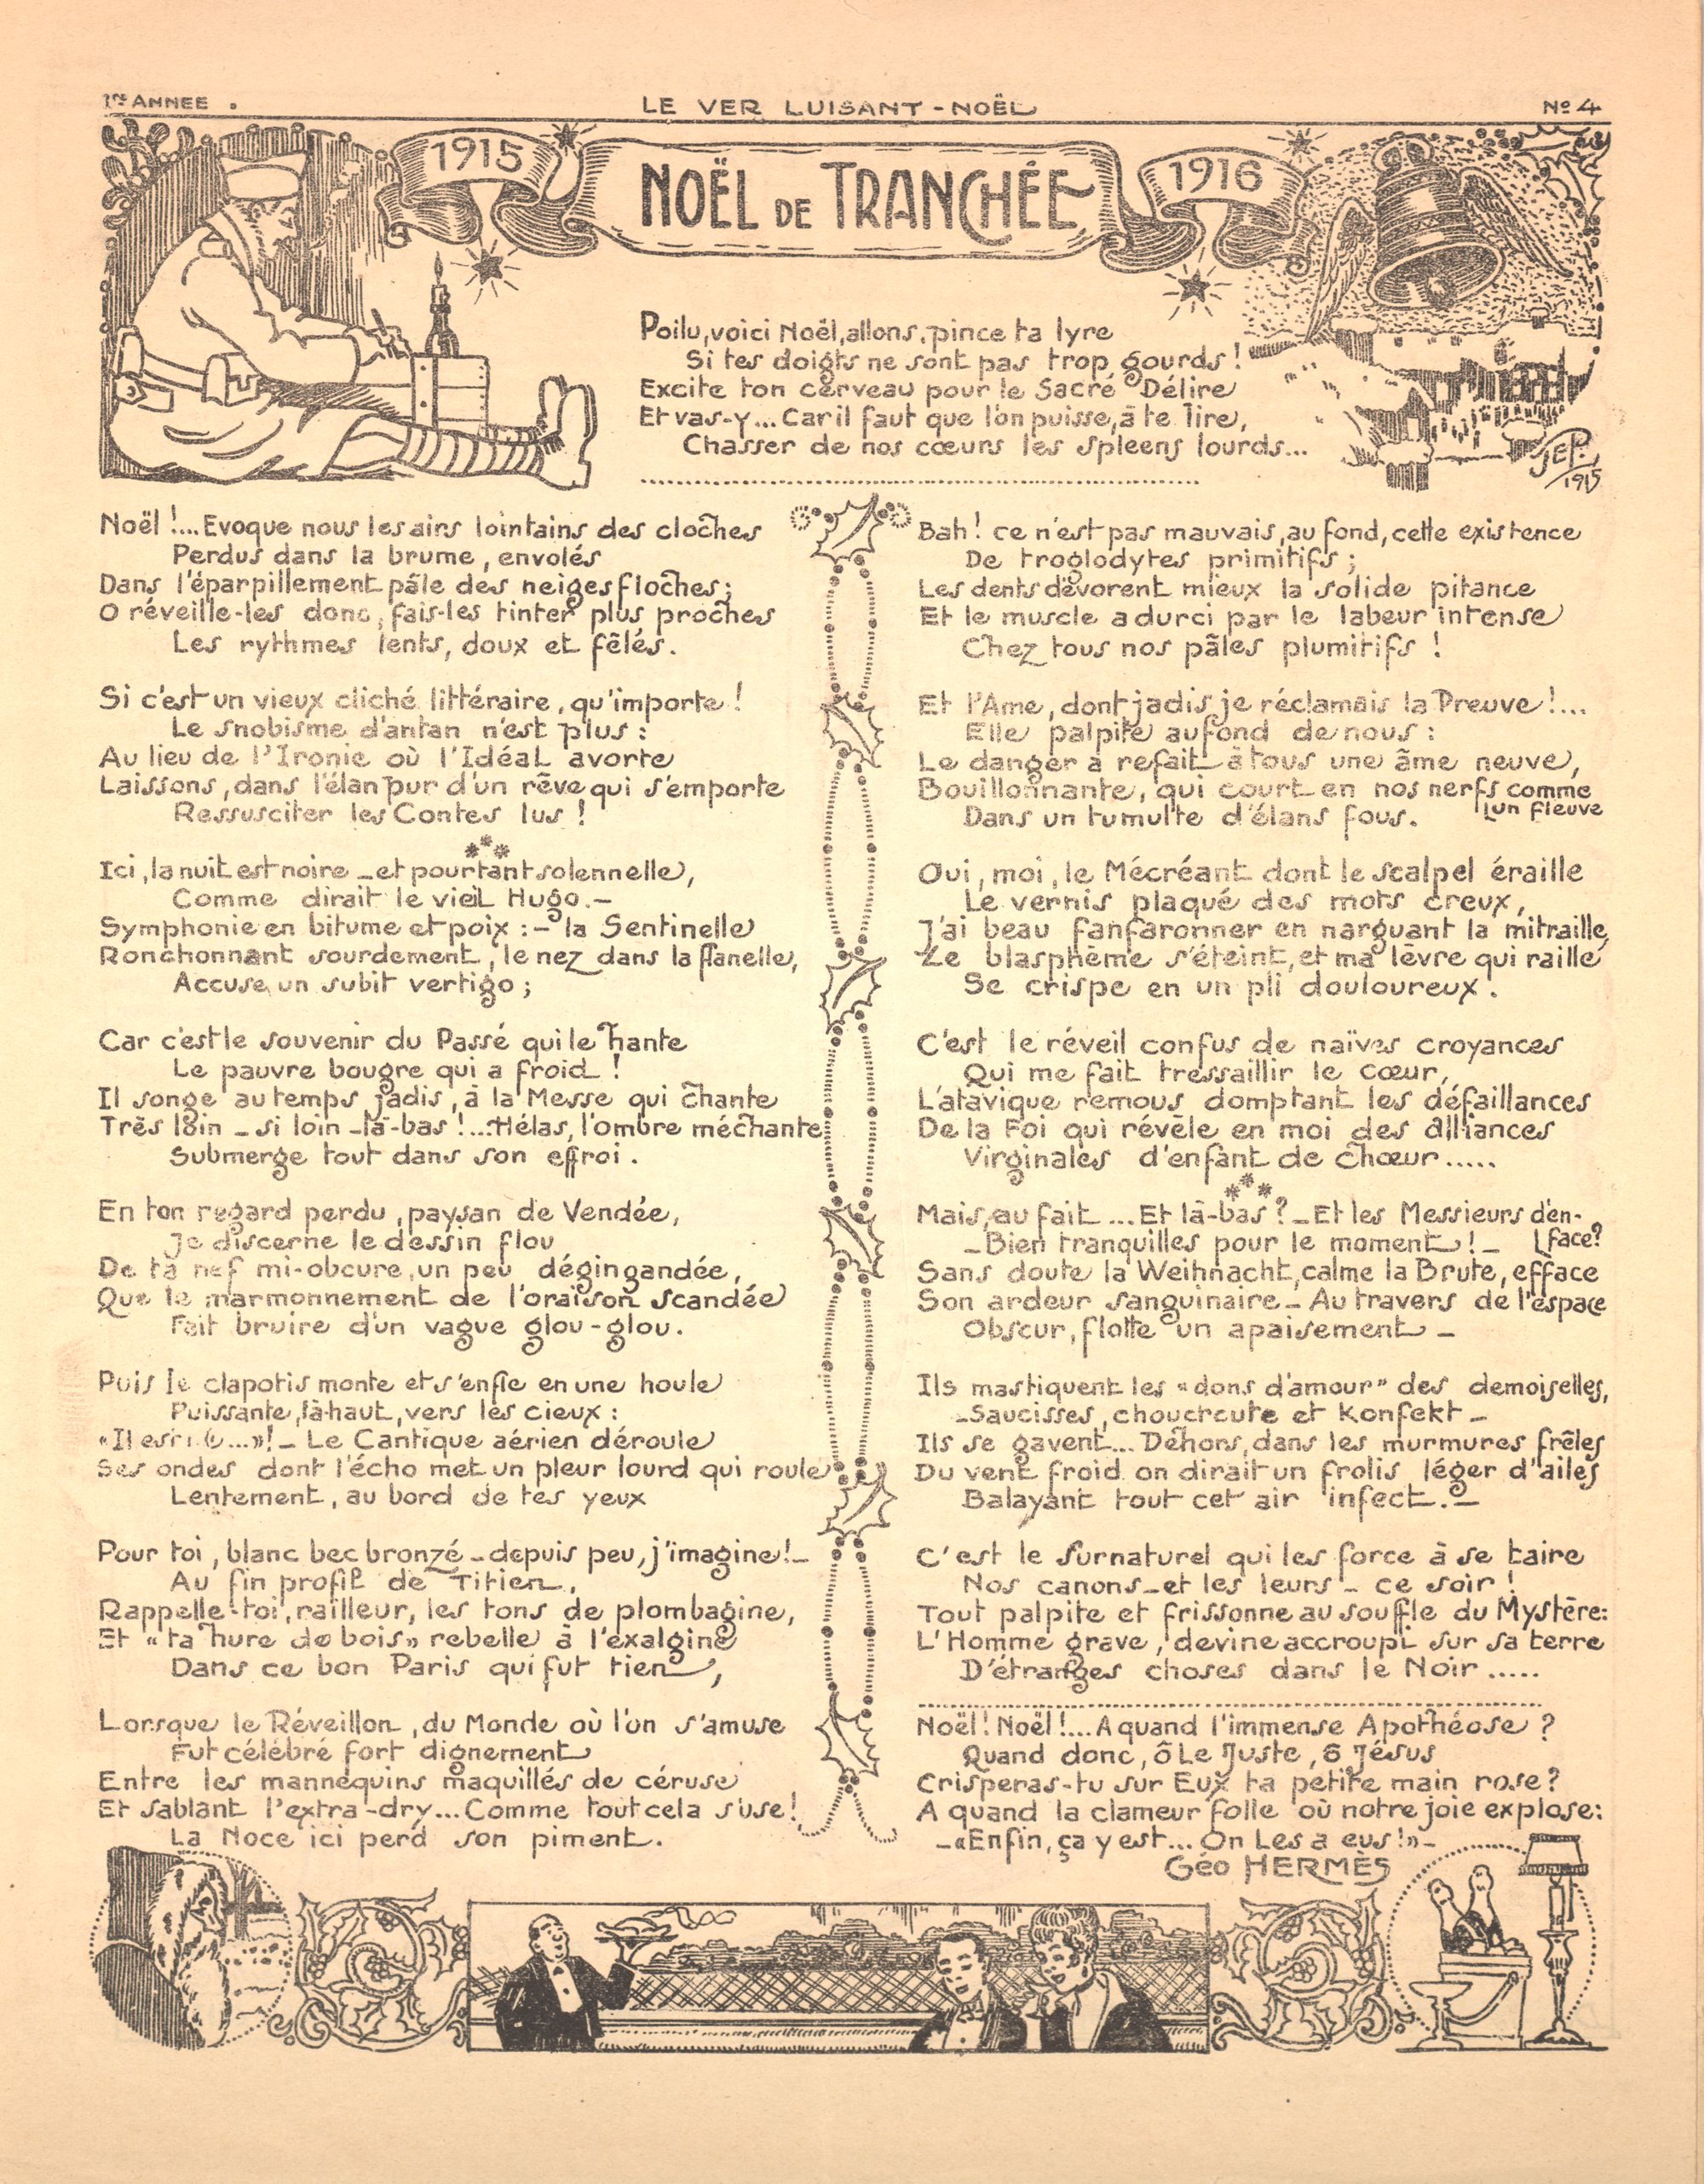 1re ANNEE .
LE VER LUISANT - NOËL
No 4
1915
NOËL DE TRANCHÉE
1916
Poilu, voici Noël, allons, pince ta lyre
Si tes doigts ne sont pas trop gourds !
Excite ton cerveau pour le Sacré Délire
Et vas-y... Car il faut que l'on puisse, à te lire,
Chasser de nos cœurs les spleens lourds...
JEP.
1915
Noël !... Evoque nous les airs lointains des cloches
Perdus dans la brume, envolés
Dans l'éparpillement pâle des neiges floches ;
O réveille-les donc, fais-les tinter plus proches
Les rythmes lents, doux et fêlés.
Si c'est un vieux cliché littéraire, qu'importe !
Le snobisme d'antan n'est plus :
Au lieu de l'Ironie où l'Idéal avorte
Laissons, dans l'élan pur d'un rêve qui s'emporte
Ressusciter les Contes lus !
***
Ici, la nuit est noire _ et pourtant solennelle,
Comme dirait le vieil Hugo. _
Symphonie en bitume et poix : _ la Sentinelle
Ronchonnant sourdement, le nez dans la flanelle,
Accuse un subit vertigo ;
Car c'est le souvenir du Passé qui le hante
Le pauvre bougre qui a froid !
Il songe au temps jadis, à la Messe qui chante
Très loin _ si loin _ là-bas !... Hélas, l'ombre méchante
Submerge tout dans son effroi.
En ton regard perdu, paysan de Vendée,
Je discerne le dessin flou
De ta nef mi-obscure, un peu dégingandée,
Que le marmonnement de l'oraison scandée
Fait bruire d'un vague glou-glou.
Puis le clapotis monte et s'enfle en une houle
Puissante, là-haut, vers les cieux :
« Il est ... »! _ Le Cantique aérien déroule
Ses ondes dont l'écho met un pleur lourd qui roule
Lentement, au bord de tes yeux
Pour toi, blanc bec bronzé _ depuis peu, j'imagine! _
Au fin profil de Titien,
Rappelle-toi, railleur, les tons de plombagine,
Et « ta hure de bois » rebelle à l'exalgine
Dans ce bon Paris qui fut tien,
Lorsque le Réveillon, du Monde où l'on s'amuse
Fut célébré fort dignement
Entre les mannequins maquillés de céruse
Et sablant l'extra-dry... Comme tout cela s'use !
La Noce ici perd son piment.
Bah ! ce n'est pas mauvais, au fond, cette existence
De troglodytes primitifs ;
Les dents dévorent mieux la solide pitance
Et le muscle a durci par le labeur intense
Chez tous nos pâles plumitifs !
Et l'Ame, dont jadis je réclamais la Preuve !...
Elle palpite au fond de nous :
Le danger a refait à tous une âme neuve,
Bouillonnante, qui court en nos nerfs comme
un fleuve
Dans un tumulte d'élans fous.
Oui, moi, le Mécréant dont le scalpel éraille
Le vernis plaqué des mots creux,
J'ai beau fanfaronner en narguant la mitraille,
Le blasphème s'éteint, et ma lèvre qui raille
Se crispe en un pli douloureux.
C'est le réveil confus de naïves croyances
Qui me fait tressaillir le cœur,
L'atavique remous domptant les défaillances
De la Foi qui révèle en moi des alliances
Virginales d'enfant de chœur.....
***
Mais, au fait ... Et là-bas ? _ Et les Messieurs d'en-
face?
_ Bien tranquilles pour le moment ! _
Sans doute la Weihnacht, calme la Brute, efface
Son ardeur sanguinaire _ Au travers de l'espace
Obscur, flotte un apaisement _
Ils mastiquent les « dons d'amour » des demoiselles,
_ Saucisses, choucroute et Konfekt _
Ils se gavent... Dehors, dans les murmures frêles
Du vent froid on dirait un frolis léger d'ailes
Balayant tout cet air infect. _
C'est le Surnaturel qui les force à se taire
Nos canons _ et les leurs _ ce soir !
Tout palpite et frissonne au souffle du Mystère :
L'Homme grave, devine accroupi sur sa terre
D'étranges choses dans le Noir .....
Noël ! Noël !... A quand l'immense Apothéose ?
Quand donc, ô Le Juste, ô Jésus
Crisperas-tu sur Eux ta petite main rose ?
A quand la clameur folle où notre joie explose :
_ « Enfin, ça y est... On Les a eus ! » _
Géo HERMÈS